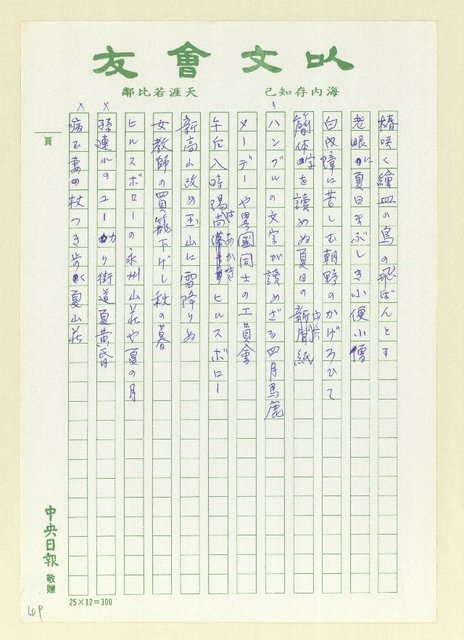 以文會友
海内存知己 天涯若比鄰
椿咲く繪皿の鳥の飛ばんとす
老眼が夏日まぶしき小便小僧
白内障に苦しむ朝野のかげろひて
簡体字を讀めぬ夏日の新聞紙
ハングルの文字が讀めざる四月馬鹿
メーデーや異國同士の工員會
午后八時陽尚 ヒルスボロー
新高山改め玉山に雪降りぬ
女教師の買籠下げし秋の暮
ヒルスボローの永州山荘や夏の月
孫連れの街道夏黄昏
病む妻の杖つき歩く夏山荘
頁
中央日報 敬贈
25×12=300